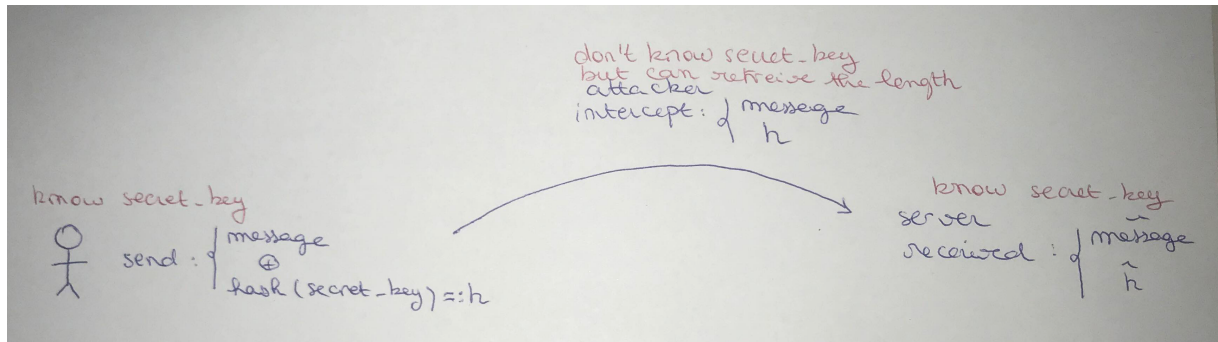 don't know secret_key
but can retreive the length
attacker
intercept: { message
h
know secret_key
send : { message
⊕
hash(secret_key) =: h
know secret_key
server
received : { m̃essage
h̃